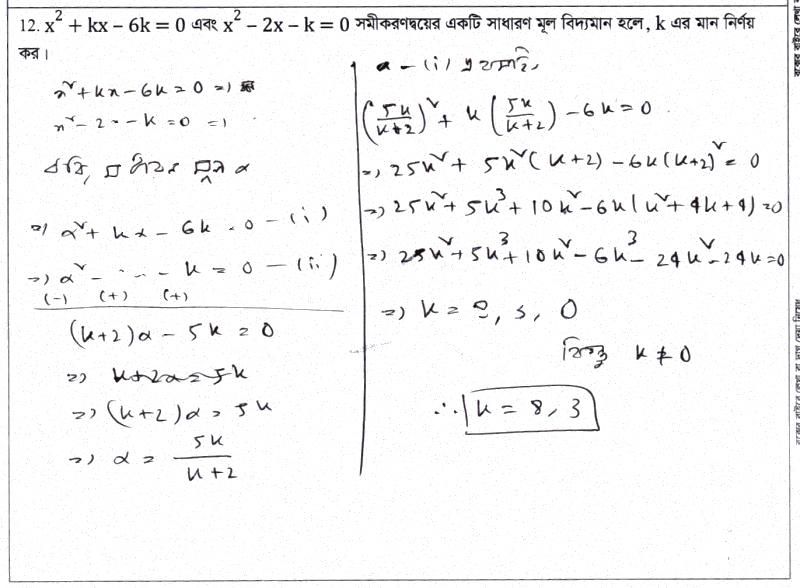 12. x² + kx – 6k = 0 এবং x² – 2x – k = 0 সমীকরণদ্বয়ের একটি সাধারণ মূল বিদ্যমান হলে, k এর মান নির্ণয়
কর।
x² + kx – 6k = 0 =>
x² – 2x – k = 0 =>
ধরি, মূল α
=> α² + kα – 6k = 0 – (i)
=> α² – k = 0 – (ii)
(-) (+) (+)
(k+2)α – 5k = 0
=> (k+2)α = 5k
=> α = 5k/(k+2)
α – (i)
(5k/(k+2))² + k(5k/(k+2)) – 6k = 0
=> 25k² + 5k²(k+2) – 6k(k+2)² = 0
=> 25k² + 5k³ + 10k² – 6k(k² + 4k + 4) = 0
=> 25k² + 5k³ + 10k² – 6k³ – 24k² – 24k = 0
=> k = ৪, ৩, 0
কিন্তু k ≠ 0
∴ k = 8, 3